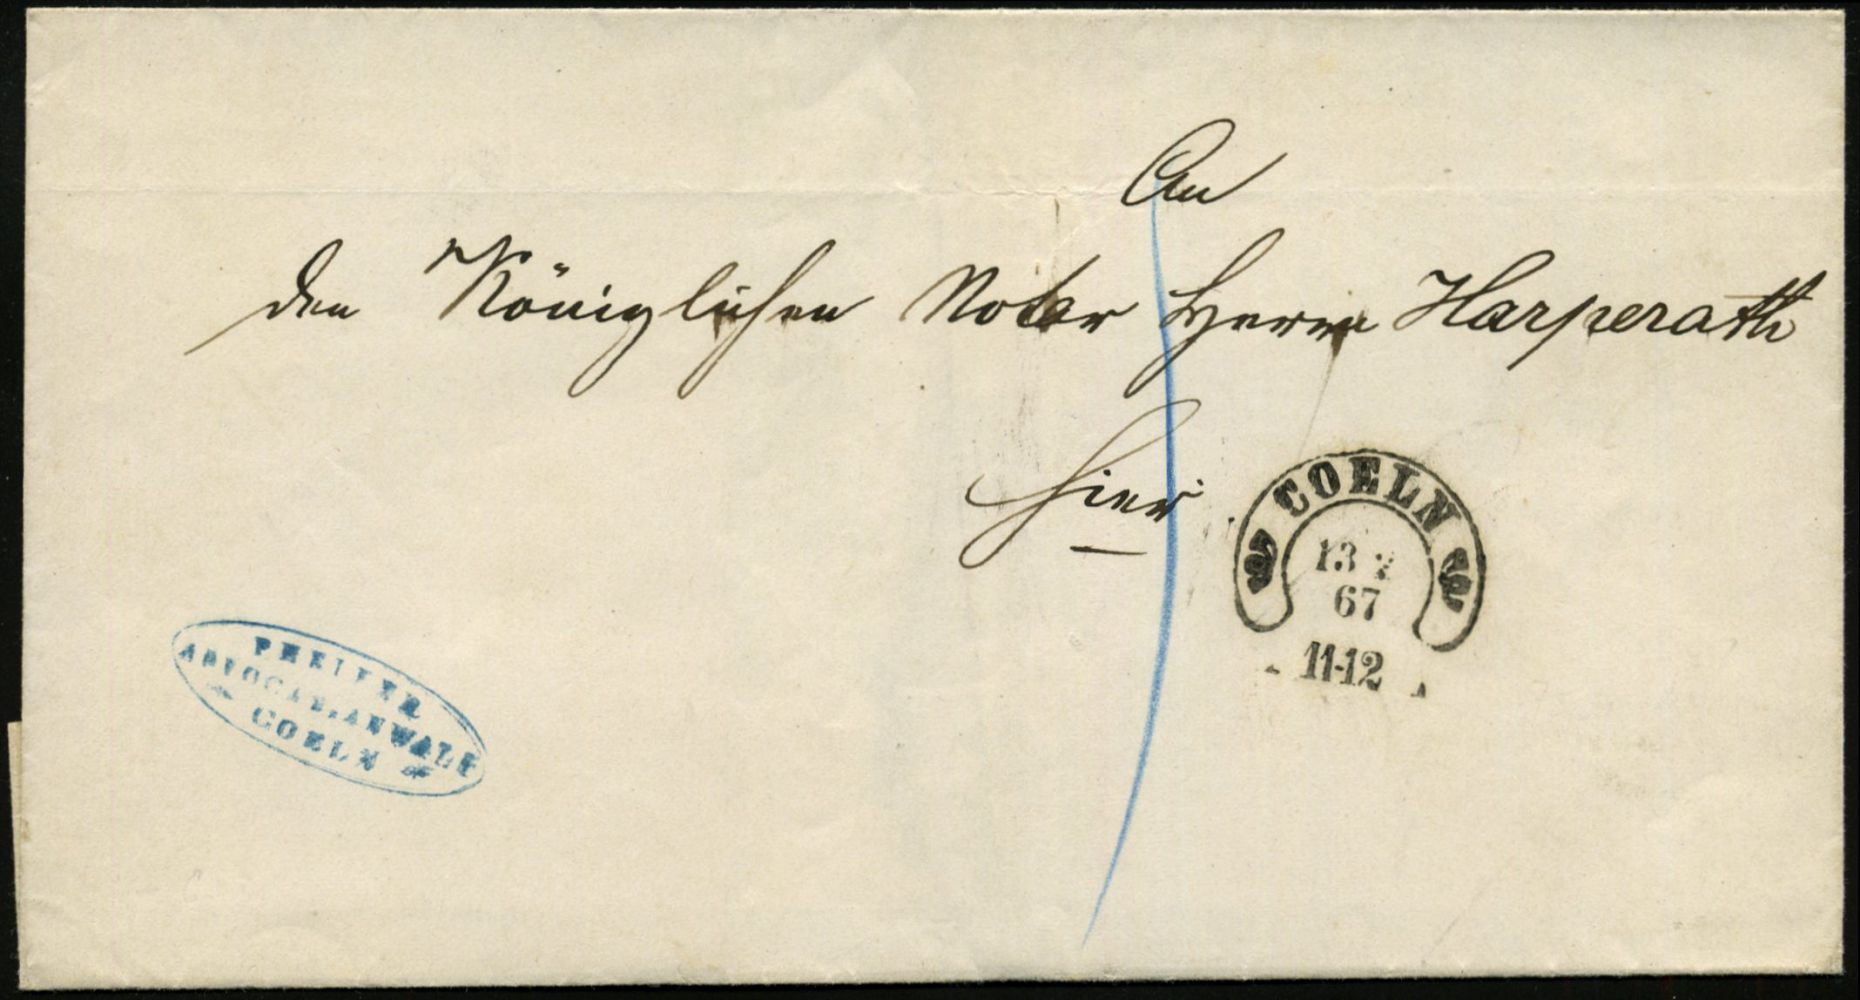 An
den Königlichen Notar Herrn Harperath
hier
COELN
13
67
11-12
PFEIFFER
ADVOCAT-ANWALT
COELN